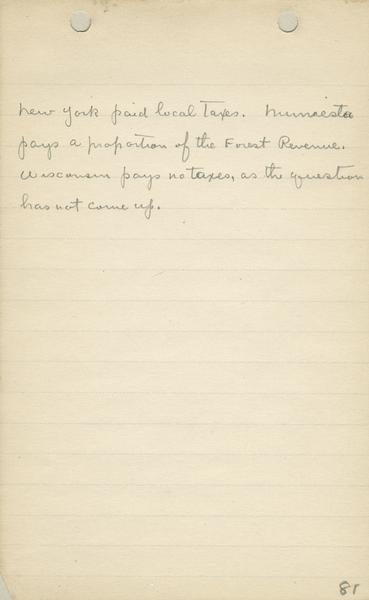 New York paid local Taxes. Minnesota
pays a proportion of the Forest Revenue.
Wisconsin pays no taxes, as the question
has not come up.
81